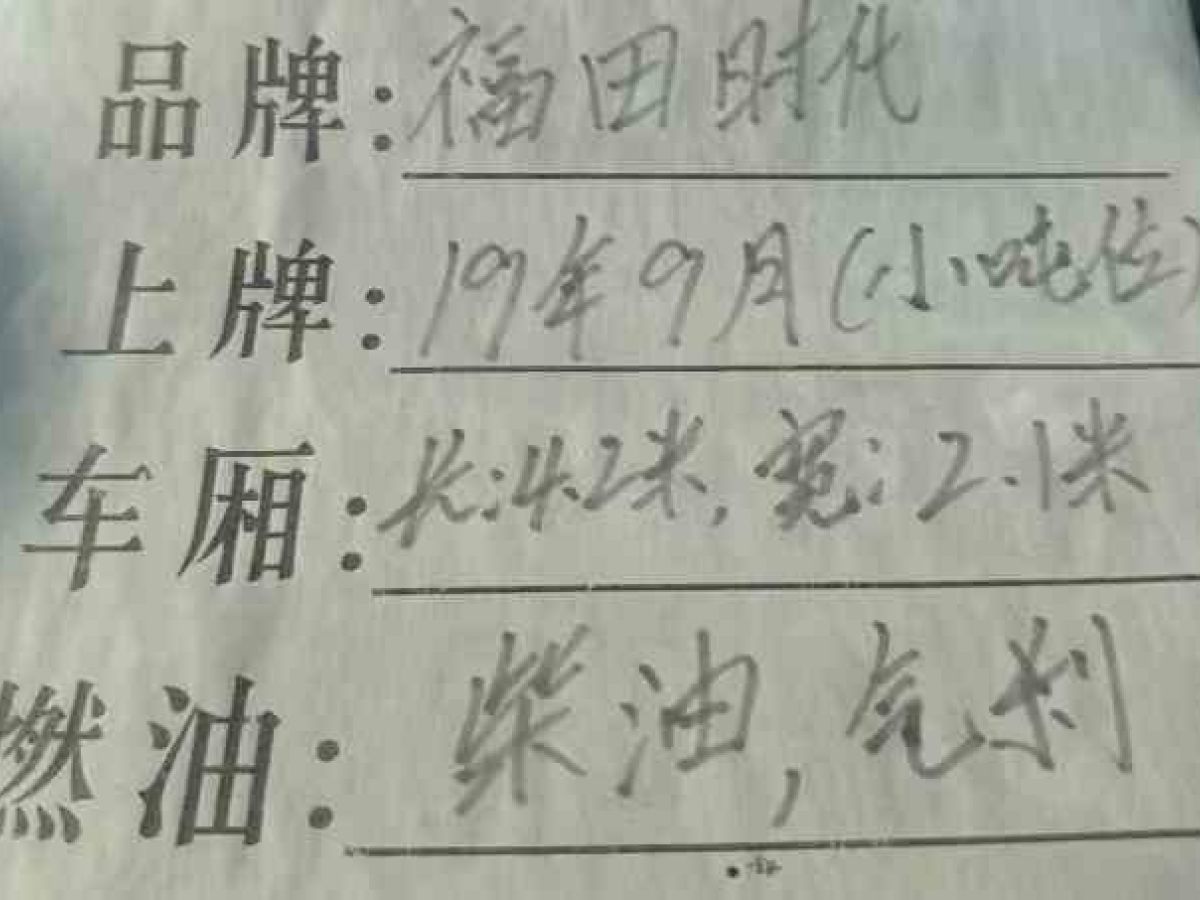 品牌:福田时代
上牌:19年9月(小吨位)
车厢:长:4.2米,宽:2.1米
燃油:柴油,气刹